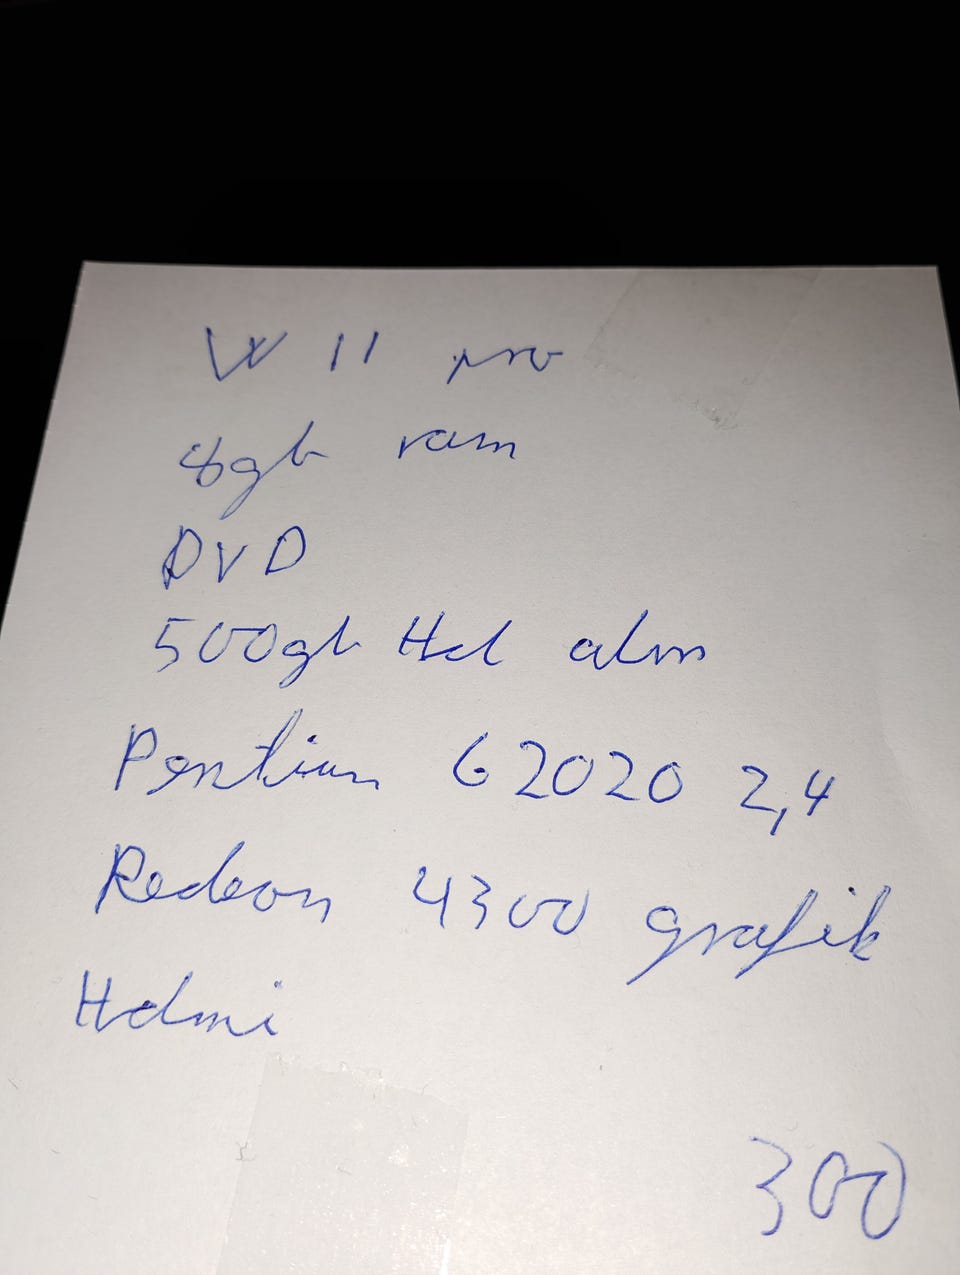 W 11 pro
8gb ram
DVD
500gb Hd alm
Pentium G2020 2,4
Radeon 4300 grafik
Hdmi
300